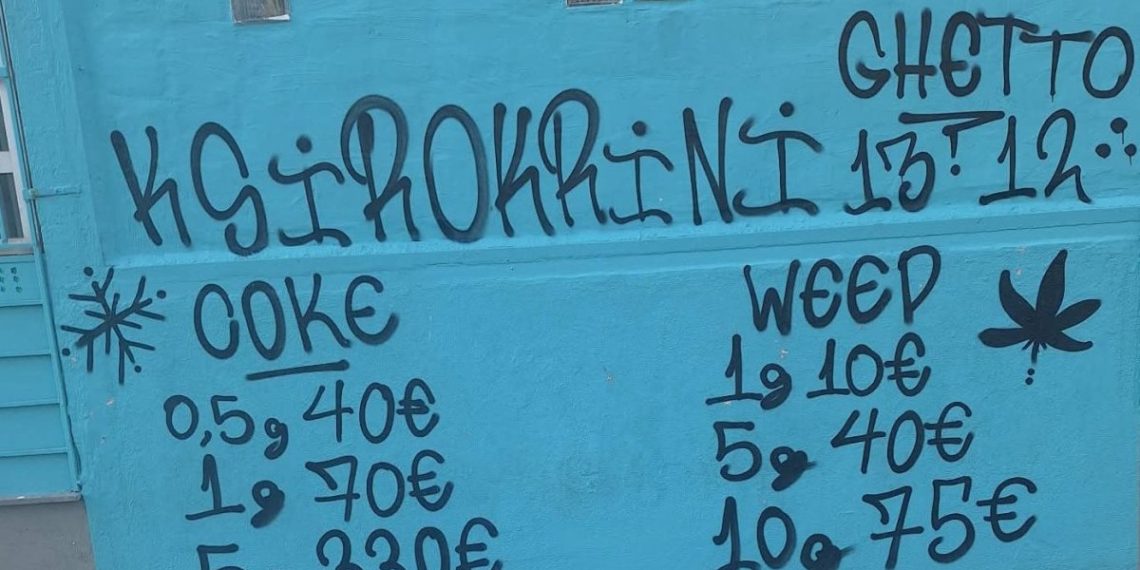 GHETTO
KSiROKRiNi 13 12
COKE
0,5g 40€
1g 70€
5g 330€
WEED
1g 10€
5g 40€
10g 75€